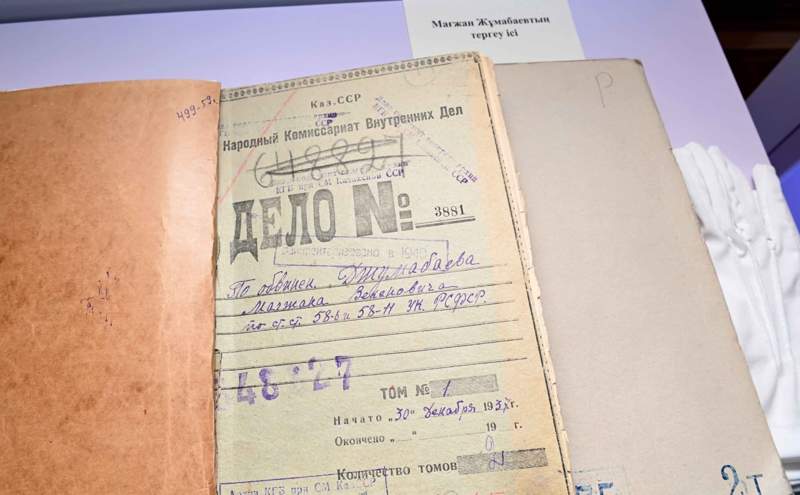 Мағжан Жұмабаевтың
тергеу ісі
499-59.
Р
Каз.ССР
ССР
Народный Комиссариат Внутренних Дел
КГБ при СМ Казахской ССР
ДЕЛО №: 3881
По обвинен. Джумабаева
Магжана Бекеновича
по ст.ст. 58-6 и 58-11 УК. РСФСР.
ТОМ № 1
Начато „30" Декабря 193 г.
Окончено „ " 19 г.
Количество томов 2
КГБ при СМ Каз.ССР